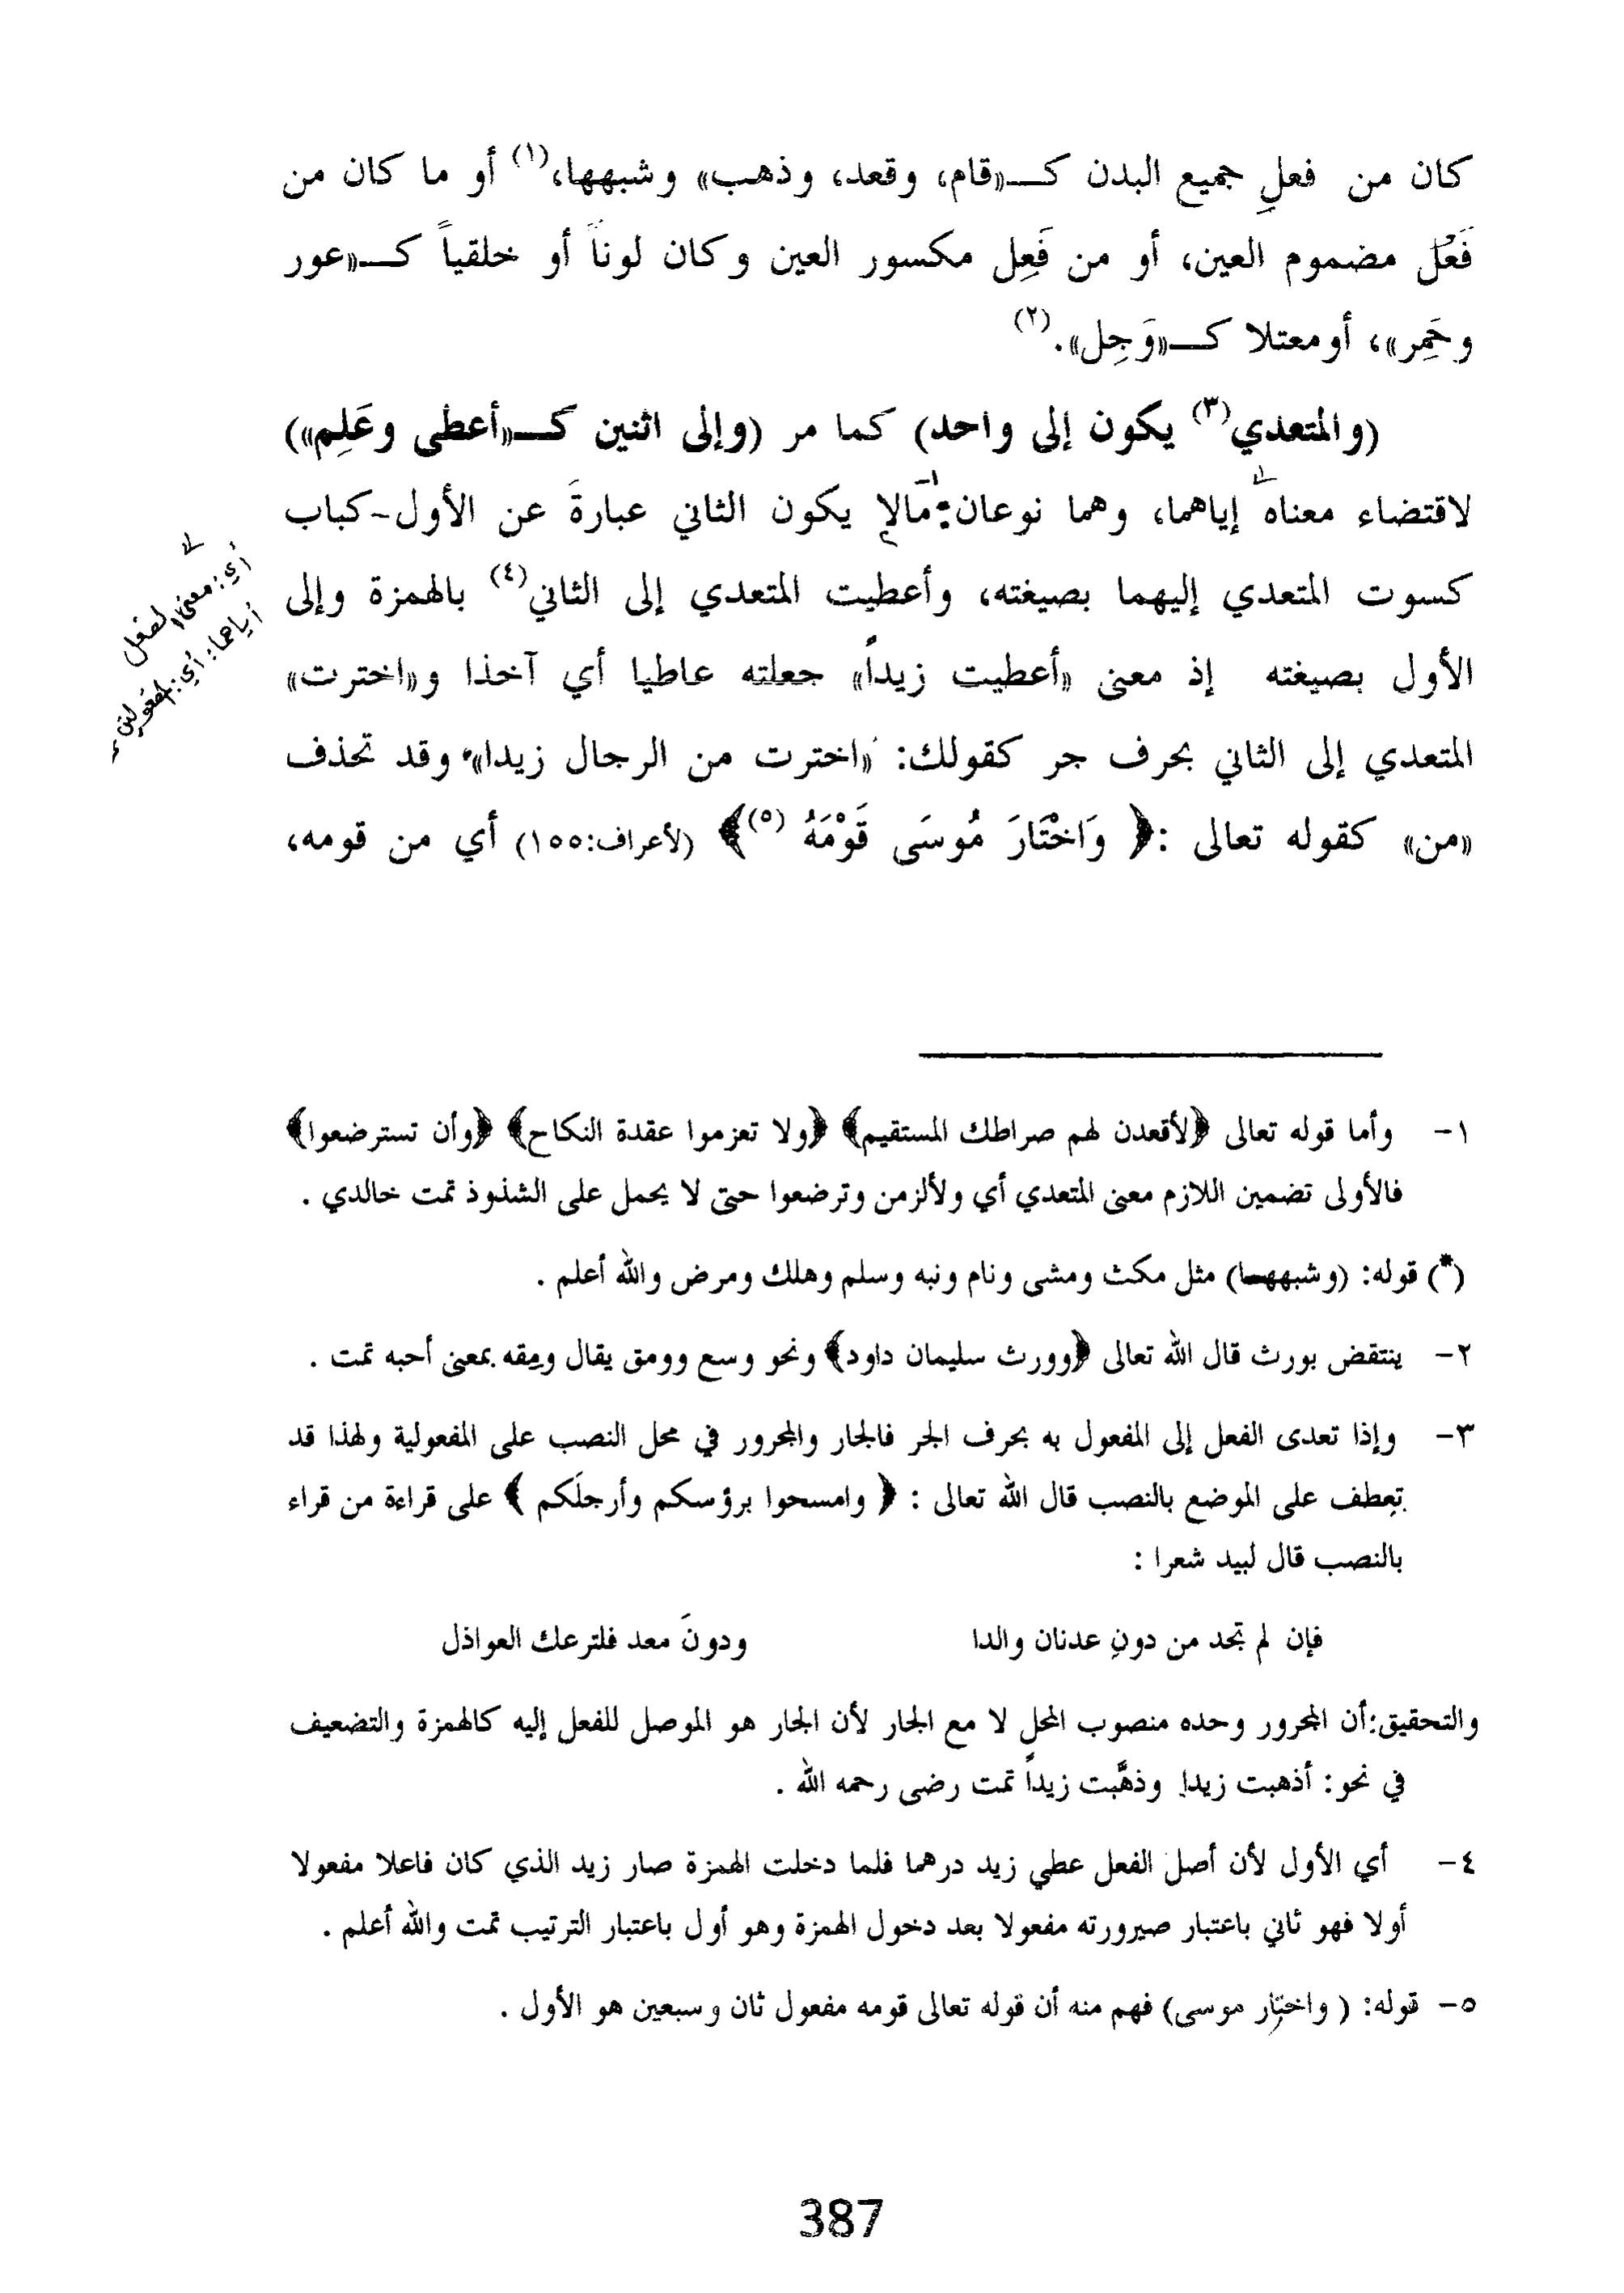 كان من فعلِ جميع البدن كـ«قام، وقعد، وذهب» وشبهها،(١) أو ما كان من
فَعُل مضموم العين، أو من فَعِل مكسور العين وكان لوناً أو خلقياً كـ«عور
وحَمِر»، أومعتلا كـ«وَجِل».(٢)
(والمتعدي(٣) يكون إلى واحد) كما مر (وإلى اثنين كـ«أعطى وعَلِم»)
لاقتضاء معناه إياهما، وهما نوعان: ١- مالا يكون الثاني عبارةَ عن الأول-كباب
كسوت المتعدي إليهما بصيغته، وأعطيت المتعدي إلى الثاني(٤) بالهمزة وإلى
الأول بصيغته إذ معنى «أعطيت زيداً» جعلته عاطيا أي آخذا و«اخترت»
المتعدي إلى الثاني بحرف جر كقولك: «اخترت من الرجال زيدا» وقد تحذف
«من» كقوله تعالى :﴿ وَاخْتَارَ مُوسَى قَوْمَهُ (٥)﴾ (لأعراف:١٥٥) أي من قومه،
أي: معنى الفعل
أياهما: أي: المفعولين
١- وأما قوله تعالى ﴿لأقعدن لهم صراطك المستقيم﴾ ﴿ولا تعزموا عقدة النكاح﴾ ﴿وأن تسترضعوا﴾
فالأولى تضمين اللازم معنى المتعدي أي ولألزمن وترضعوا حتى لا يحمل على الشذوذ تمت خالدي .
(*) قوله: (وشبههـا) مثل مكث ومشى ونام ونبه وسلم وهلك ومرض والله أعلم .
٢- ينتقض بورث قال الله تعالى ﴿وورث سليمان داود﴾ ونحو وسع وومق يقال ومِقه بمعنى أحبه تمت .
٣- وإذا تعدى الفعل إلى المفعول به بحرف الجر فالجار والمجرور في محل النصب على المفعولية ولهذا قد
تعطف على الموضع بالنصب قال الله تعالى : ﴿ وامسحوا برؤسكم وأرجلَكم ﴾ على قراءة من قراء
بالنصب قال لبيد شعرا :
فإن لم تجد من دونِ عدنان والدا ودونَ معد فلترعك العواذل
والتحقيق:أن المجرور وحده منصوب المحل لا مع الجار لأن الجار هو الموصل للفعل إليه كالهمزة والتضعيف
في نحو: أذهبت زيدا وذهَّبت زيداً تمت رضى رحمه الله .
٤- أي الأول لأن أصل الفعل عطي زيد درهما فلما دخلت الهمزة صار زيد الذي كان فاعلا مفعولا
أولا فهو ثاني باعتبار صيرورته مفعولا بعد دخول الهمزة وهو أول باعتبار الترتيب تمت والله أعلم .
٥- قوله: ( واختار موسى) فهم منه أن قوله تعالى قومه مفعول ثان وسبعين هو الأول .
387